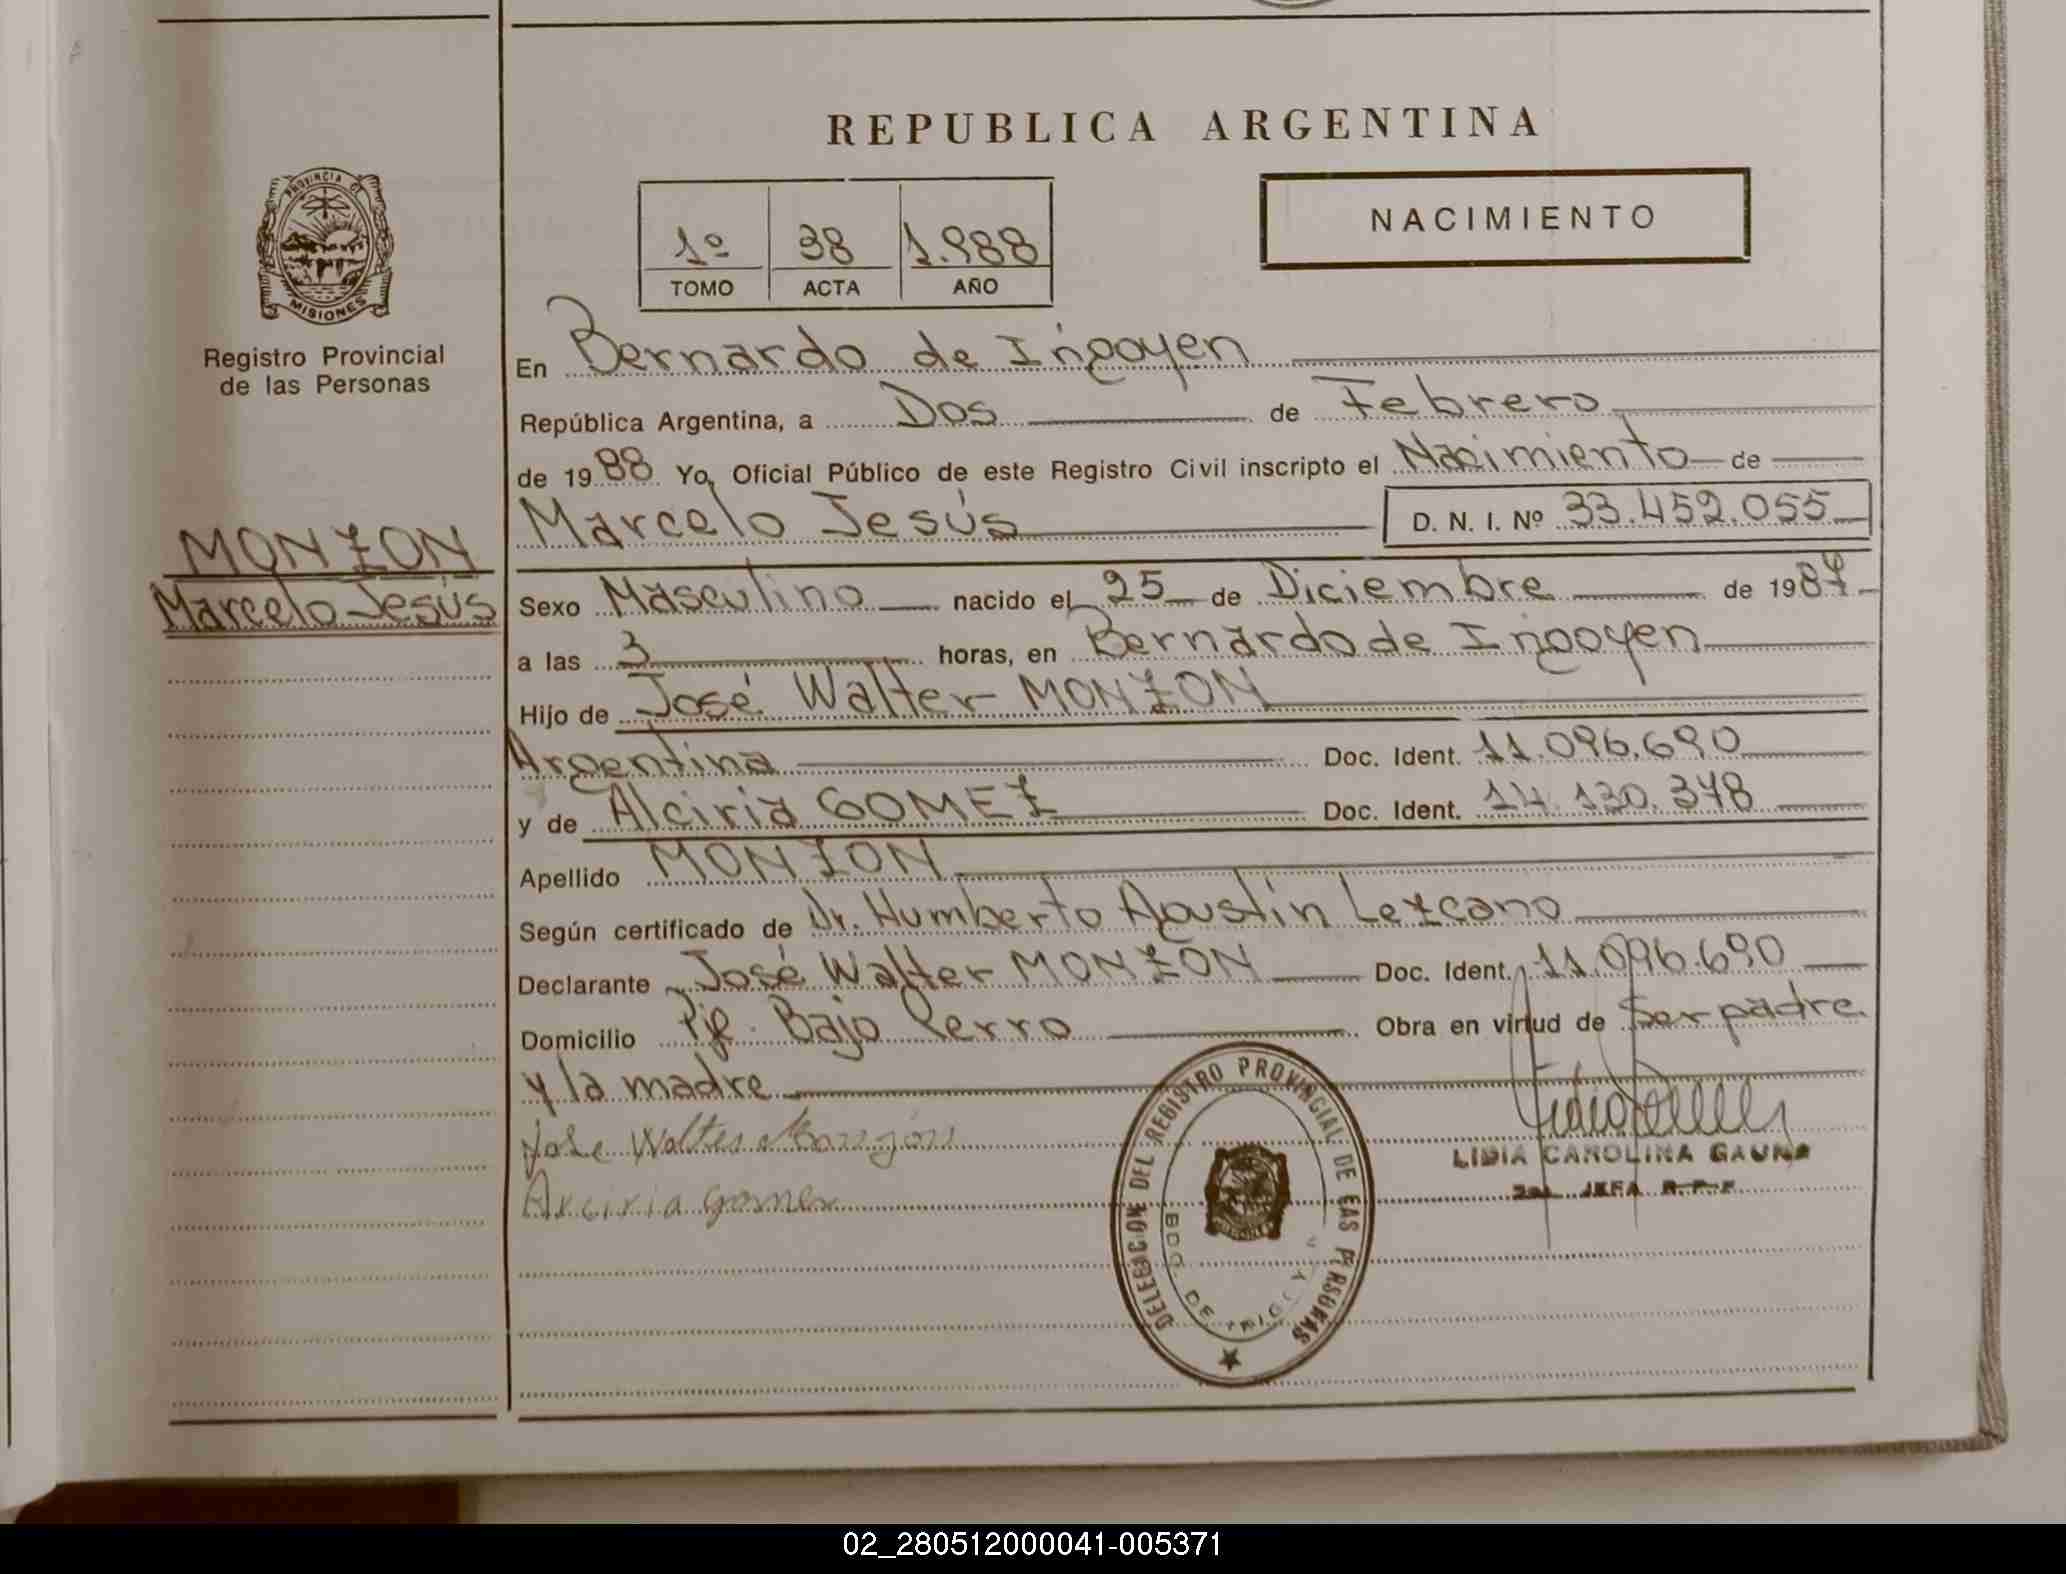 REPUBLICA ARGENTINA
NACIMIENTO
1º 38 1.988
TOMO ACTA AÑO
PROVINCIA DE
MISIONES
Registro Provincial
de las Personas
MONZON
Marcelo Jesús
En Bernardo de Irigoyen
República Argentina, a Dos de Febrero
de 1988 Yo, Oficial Público de este Registro Civil inscripto el Nacimiento de
Marcelo Jesús D. N. I. Nº 33.452.055
Sexo Masculino nacido el 25 de Diciembre de 1987
a las 3 horas, en Bernardo de Irigoyen
Hijo de José Walter MONZON
Argentina Doc. Ident. 11.096.690
y de Alciria GOMEZ Doc. Ident. 14.130.378
Apellido MONZON
Según certificado de Dr. Humberto Agustín Lezcano
Declarante José Walter MONZON Doc. Ident. 11.096.690
Domicilio Pje. Bajo Cerro Obra en virtud de Ser padre
y la madre
Jose Walter Monzon
Arciria gomez
LIDIA CAROLINA GAUNA
JEFA R.P.P.
DELEGACION DEL REGISTRO PROVINCIAL DE LAS PERSONAS
BDO. DE IRIGOY
02_280512000041-005371